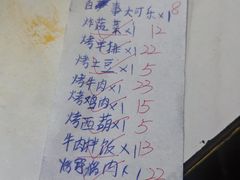 百事大可乐×1 8
炸蔬菜×1 12
烤羊排×1 22
烤土豆×1 5
烤牛肉×1 23
烤鸡肉×1 15
烤西葫×1 5
牛肉拌饭×1 13
肉×1 22